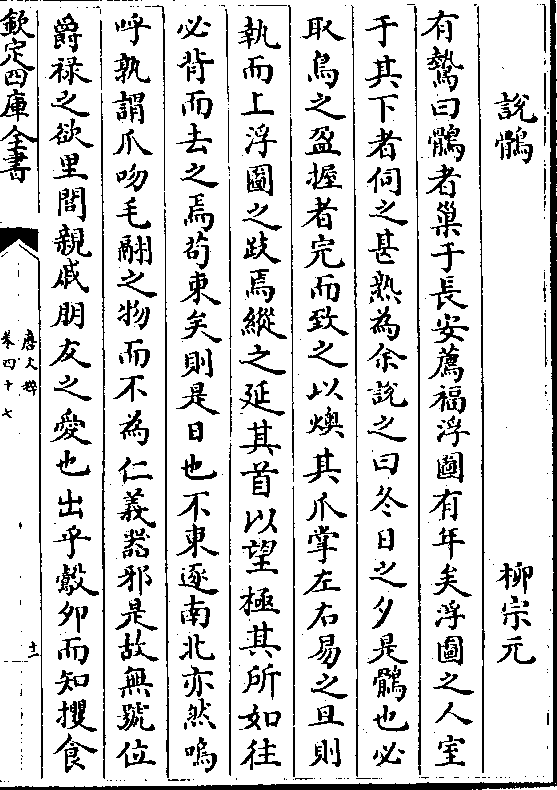 說鶻
柳宗元
有鷙曰鶻者巢于長安薦福浮圖有年矣浮圖之人室
于其下者伺之甚熟為余說之曰冬日之夕是鶻也必
取鳥之盈握者完而致之以燠其爪掌左右易之旦則
執而上浮圖之跂焉縱之延其首以望極其所如往
必背而去之焉苟東矣則是日也不東逐南北亦然嗚
呼孰謂爪吻毛翮之物而不為仁義器邪是故無號位
爵禄之欲里閭親戚朋友之愛也出乎鷇卵而知攫食
欽定四庫全書
唐文粹
卷四十七
十二